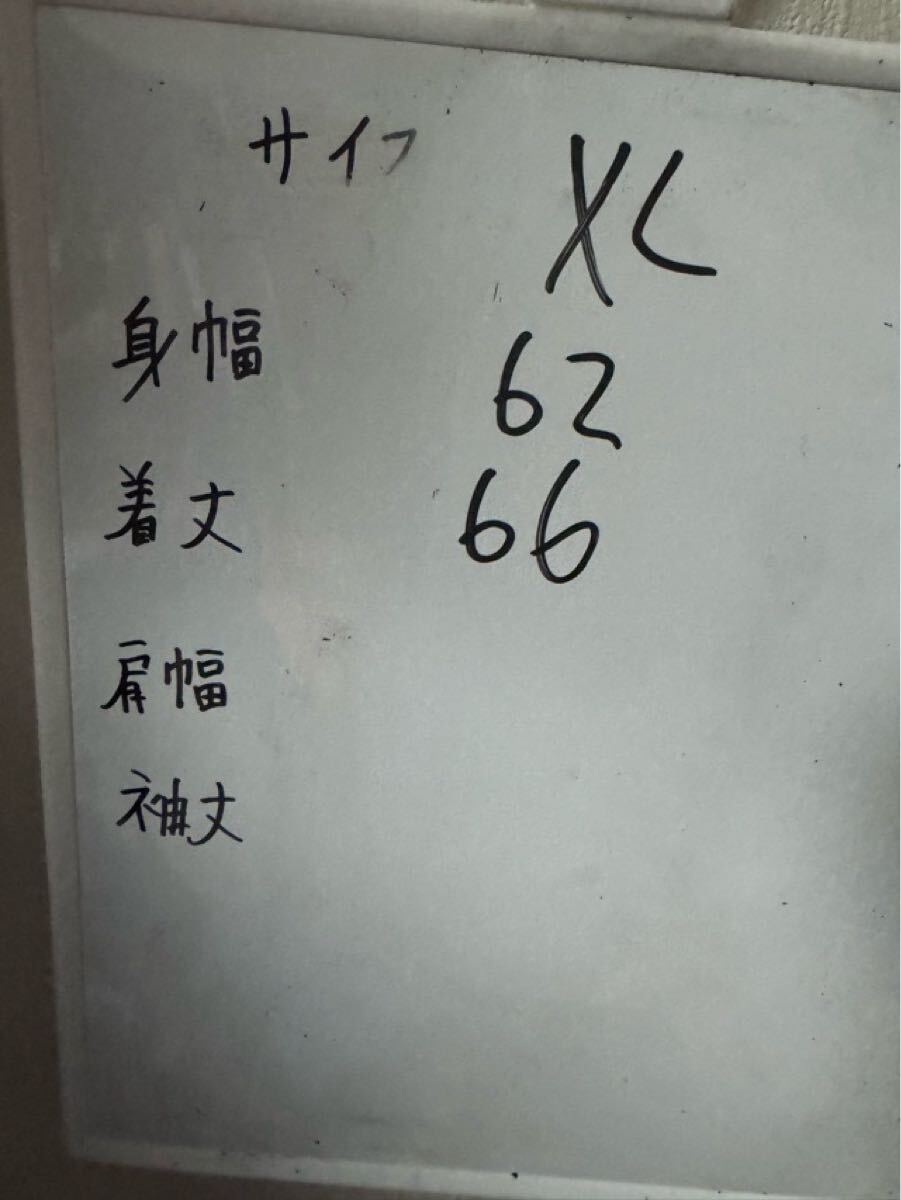 サイフ XL
身幅 62
着丈 66
肩幅
袖丈